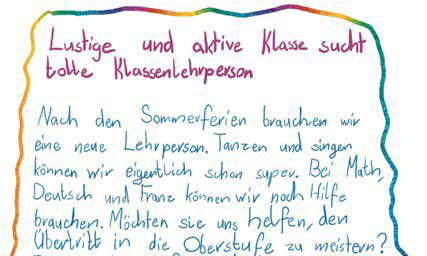 Lustige und aktive Klasse sucht
tolle Klassenlehrperson
Nach den Sommerferien brauchen wir
eine neue Lehrperson. Tanzen und singen
können wir eigentlich schon super. Bei Math,
Deutsch und Franz können wir noch Hilfe
brauchen. Möchten sie uns helfen, den
Übertritt in die Oberstufe zu meistern?